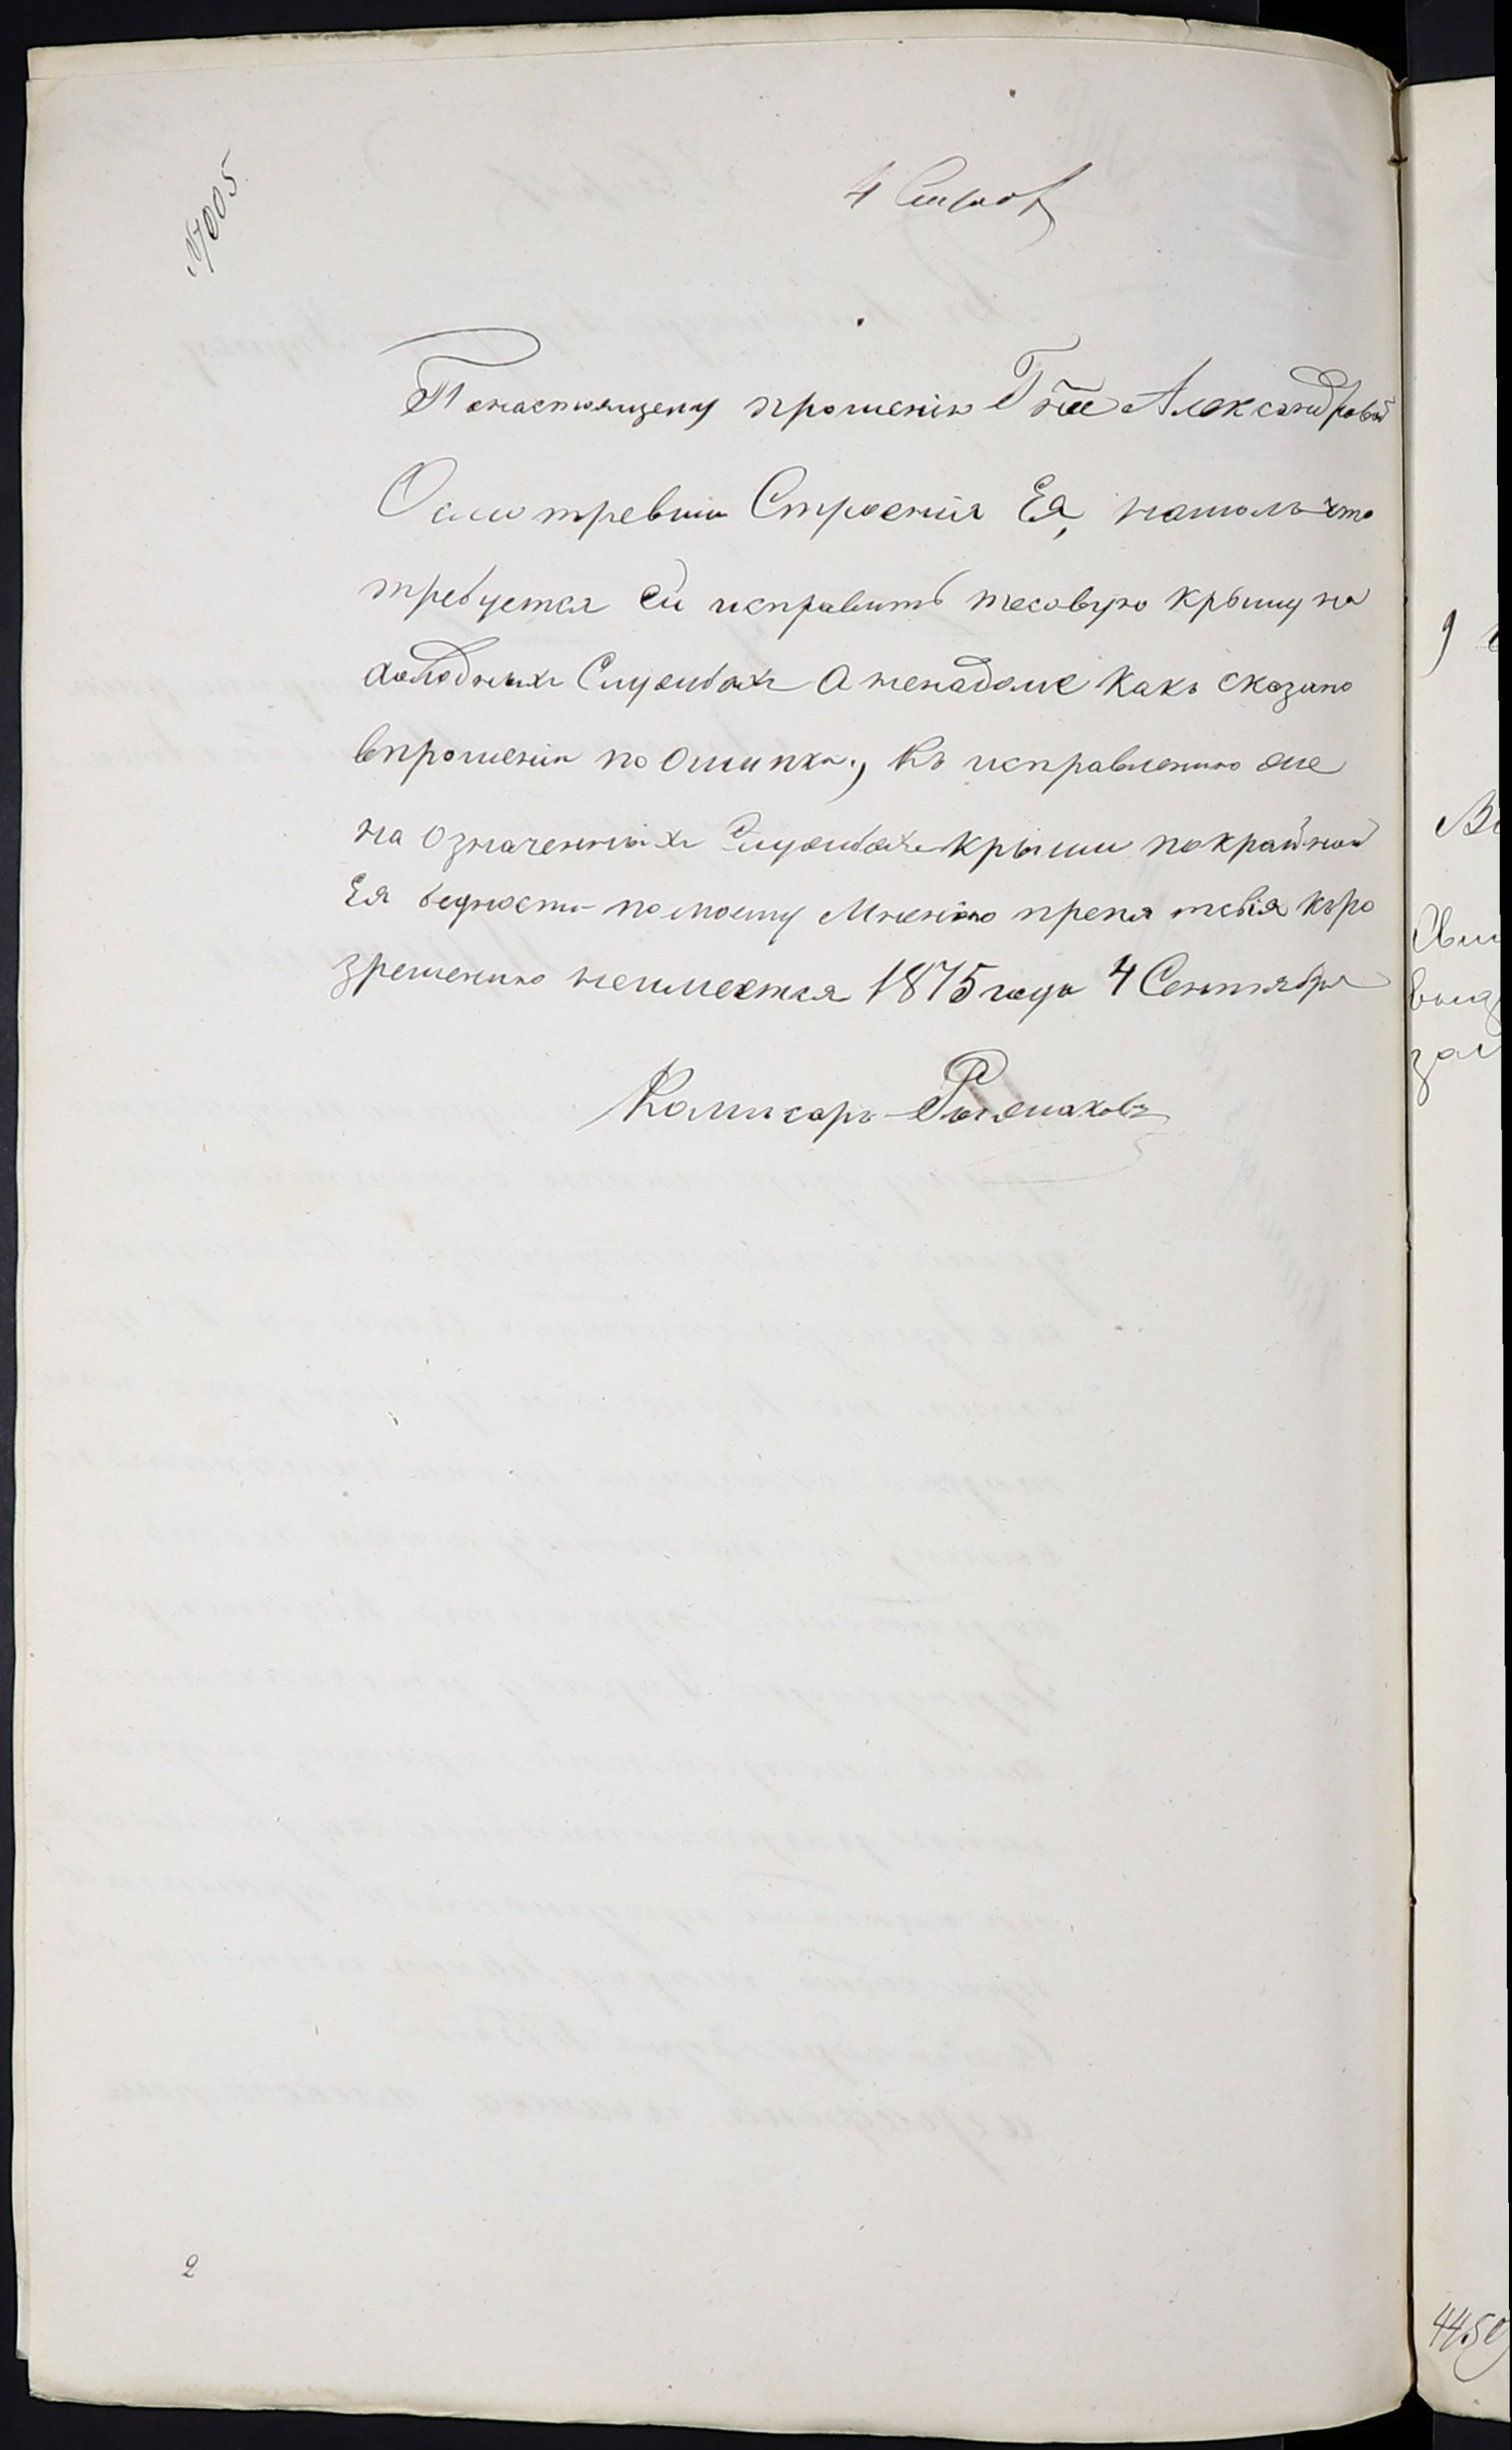 №7005
4 Сентяб
По настоящему прошенію Г̃жи Александровой
Осмотревши Строенія Ея, нашолъ что
требуется ей исправить тесовую крышу на
холодныхъ Службахъ а ненадоме какъ сказано
впрошеніи по Ошипки, Къ исправленію же
на Означенныхъ Службахъ крыши покрайной
Ея бедности помоему Мненію препятсвія къро
зрешенію неимеется 1875 года 4 Сентября
Комисаръ
2
4450